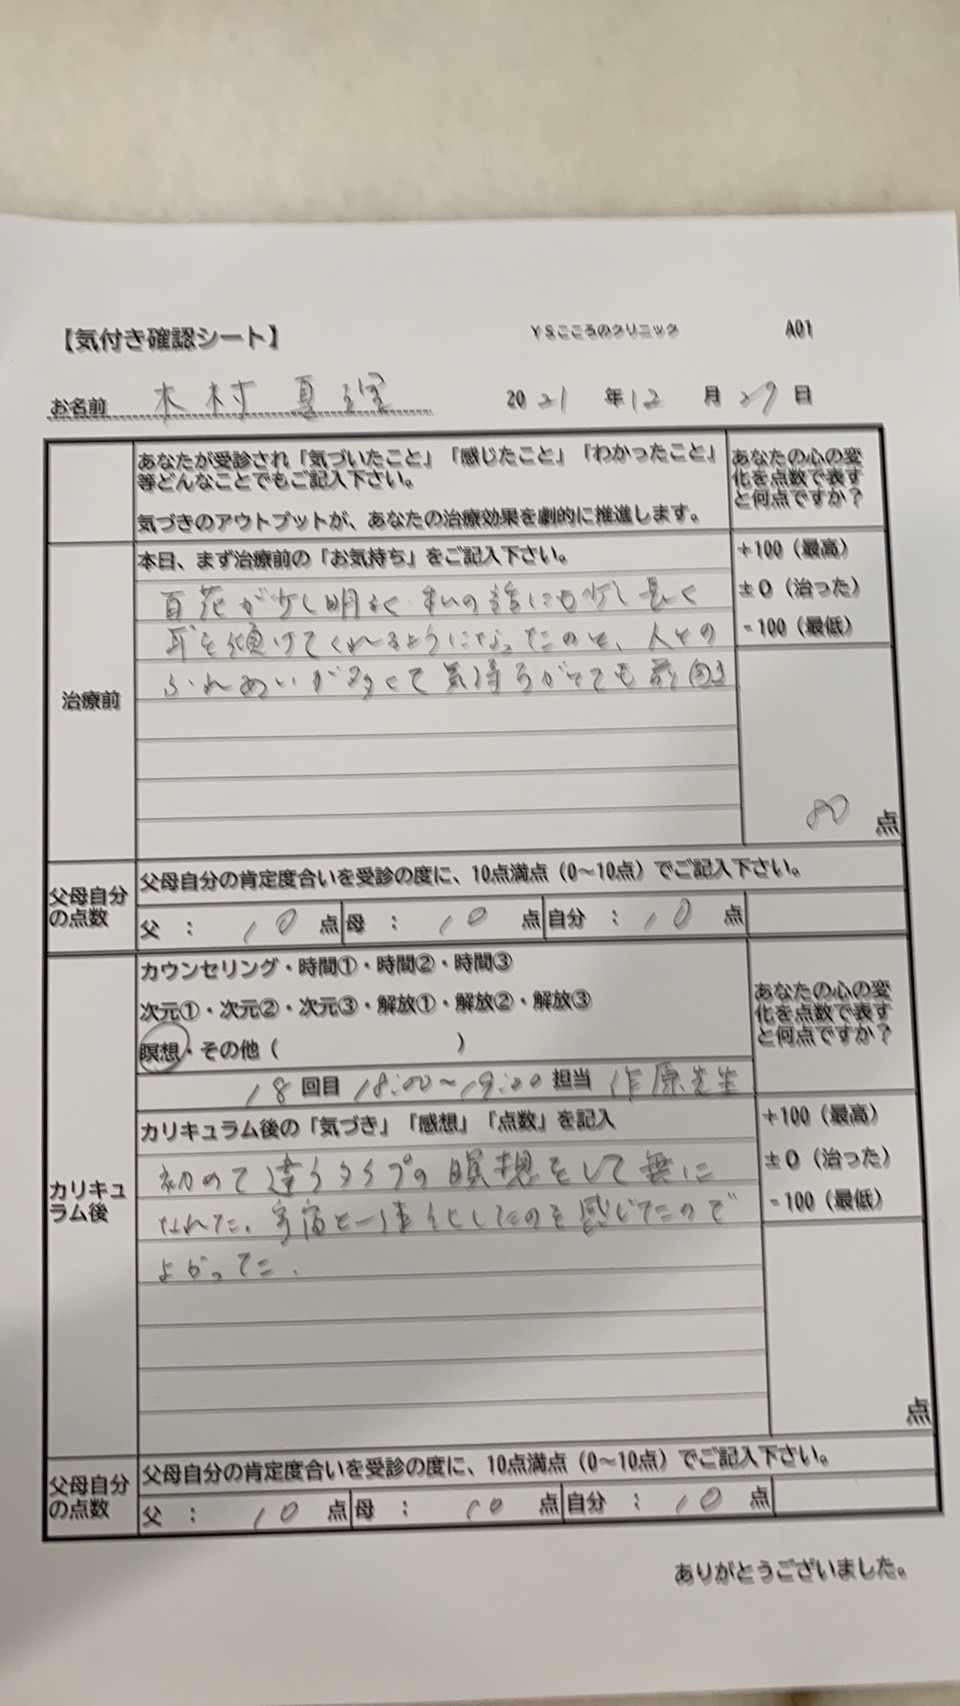 【気付き確認シート】 YSこころのクリニック A01
お名前 木村 真理 2021年12月29日
あなたが受診され「気づいたこと」「感じたこと」「わかったこと」
等どんなことでもご記入下さい。
気づきのアウトプットが、あなたの治療効果を劇的に推進します。
あなたの心の変
化を点数で表す
と何点ですか?
治療前
本日、まず治療前の「お気持ち」をご記入下さい。
百花が少し明るく私の話にも少し長く
耳を傾けてくれるようになったのと、人との
ふれあいが多くて気持ちがとても前向き
+100(最高)
±0(治った)
-100(最低)
80 点
父母自分
の点数
父母自分の肯定度合いを受診の度に、10点満点(0~10点)でご記入下さい。
父 : 10 点 母 : 10 点 自分 : 10 点
カリキュ
ラム後
カウンセリング・時間①・時間②・時間③
次元①・次元②・次元③・解放①・解放②・解放③
瞑想・その他( )
18回目 18:00~19:00 担当 作原先生
あなたの心の変
化を点数で表す
と何点ですか?
カリキュラム後の「気づき」「感想」「点数」を記入
初めて違うタイプの瞑想をして無に
なれた。宇宙と一体化したのを感じたので
よかった。
+100(最高)
±0(治った)
-100(最低)
点
父母自分
の点数
父母自分の肯定度合いを受診の度に、10点満点(0~10点)でご記入下さい。
父 : 10 点 母 : 10 点 自分 : 10 点
ありがとうございました。